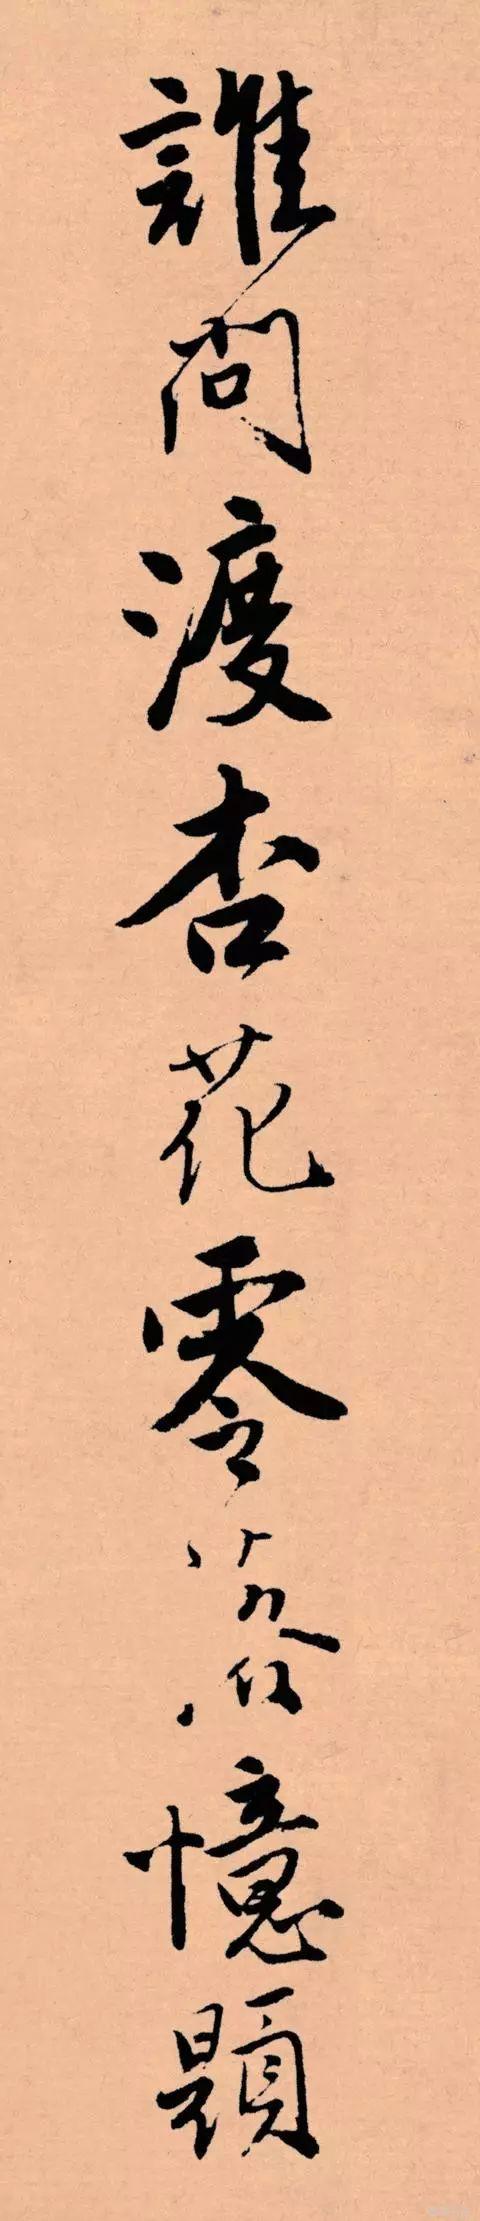 誰問渡杏花零落憶題